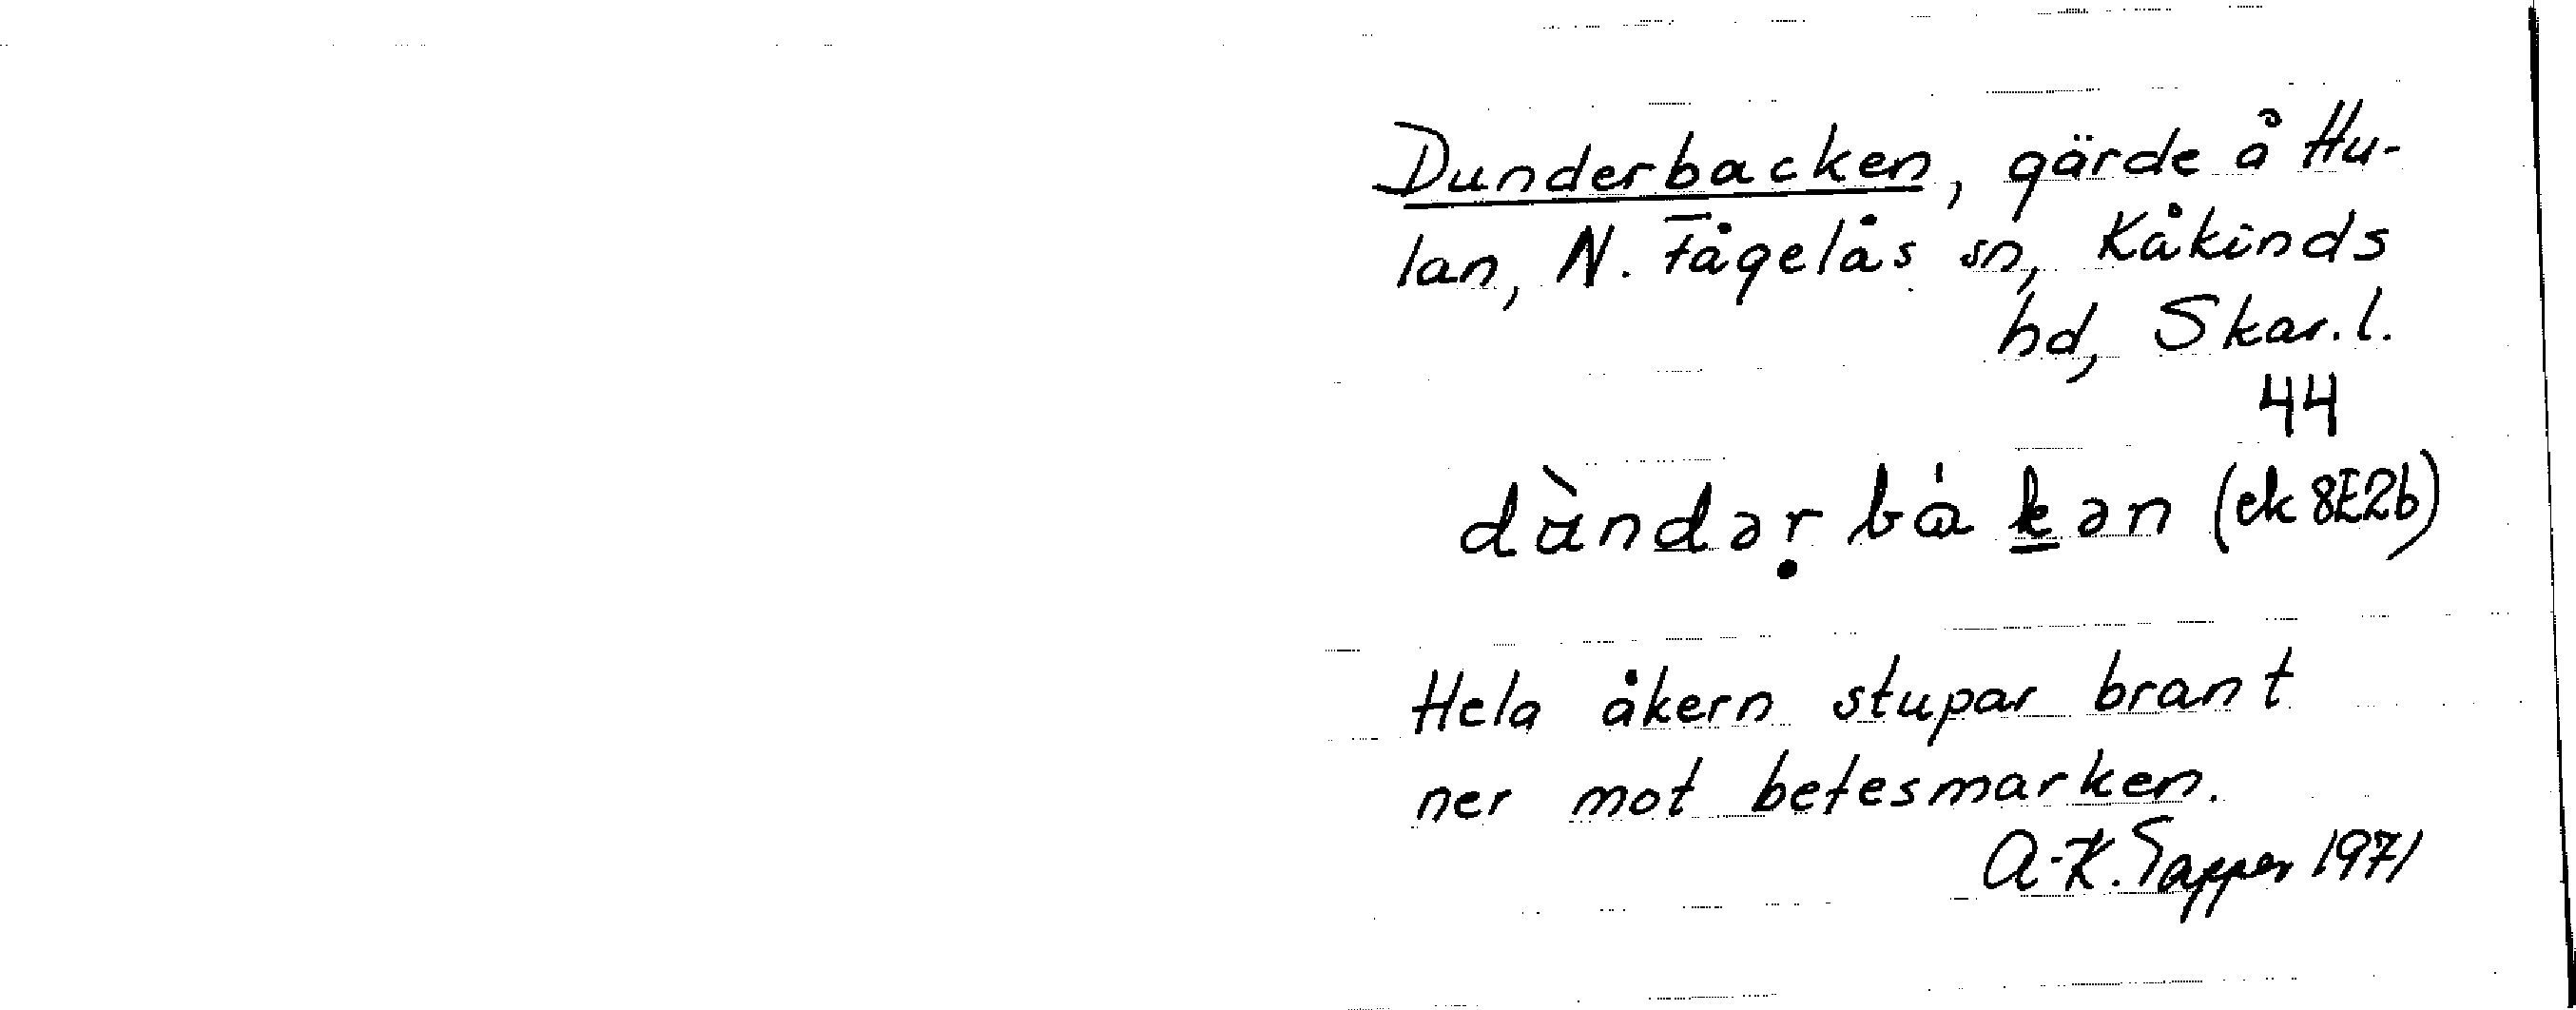 Dunderbacken, gärde å Hu-
lan, N. Fågelås sn, Kåkinds
hd, Skar.l.
44
dùndər̩ bá k̲ən (ek 8E2b)
Hela åkern stupar brant
ner mot betesmarken.
A-K. Tapper 1971